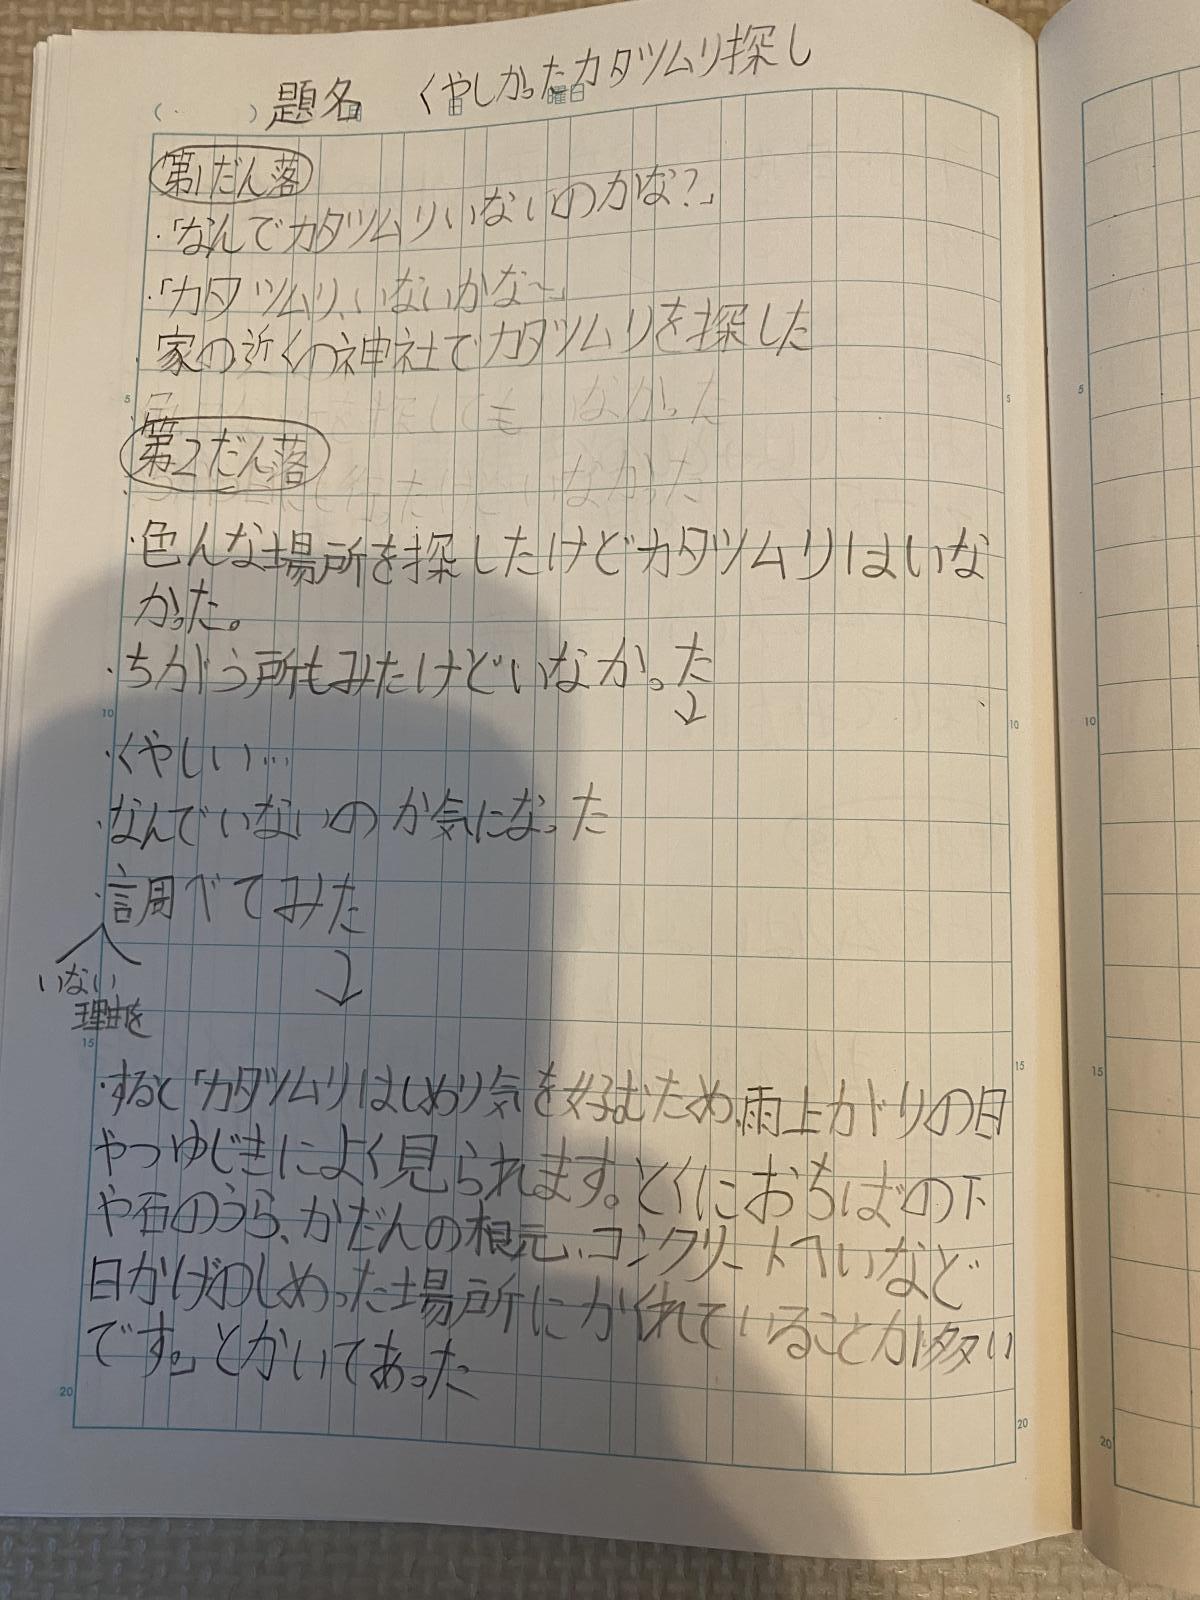 題名 くやしかったカタツムリ探し
月 日 曜日
第1だん落
・「なんでカタツムリいないのかな?」
・「カタツムリ、いないかな〜」
家の近くの神社でカタツムリを探した
を探してもいなかった
5
5
第2だん落
行ったけどいなかった
・色んな場所を探したけどカタツムリはいな
かった。
・ちがう所もみたけどいなかった
↓
10
10
・くやしい…
・なんでいないのか気になった
・調べてみた
いない
理由を
↓
15
15
・すると「カタツムリはしめり気を好むため、雨上がりの日
やつゆじきによく見られます。とくにおちばの下
や石のうら、かだんの根元、コンクリートへいなど
日かげのしめった場所にかくれていることが多い
です。」とかいてあった
20
20
5
10
15
20